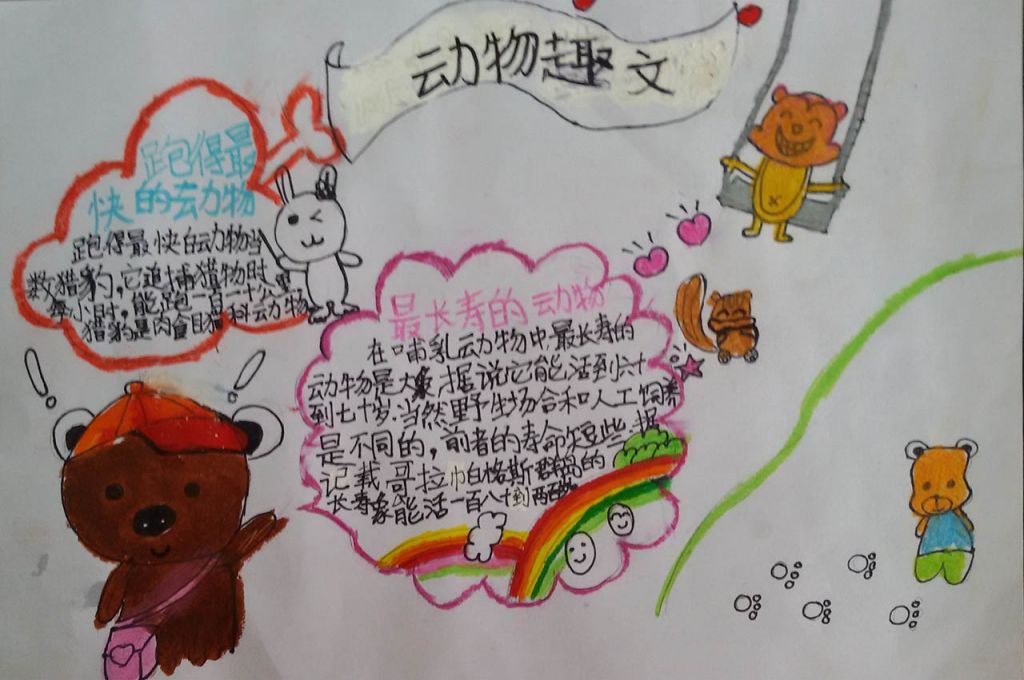 动物趣文
跑得最
快的动物
跑得最快的动物当
数猎豹,它追捕猎物时,
每小时,能跑一百一十公里
猎豹是肉食目猫科动物
最长寿的动物
在哺乳动物中,最长寿的
动物是大象,据说它能活到六十
到七十岁.当然野生场合和人工饲养
是不同的,前者的寿命短些.据
记载哥拉巾白格斯群岛的
长寿象能活一百八十到两百岁